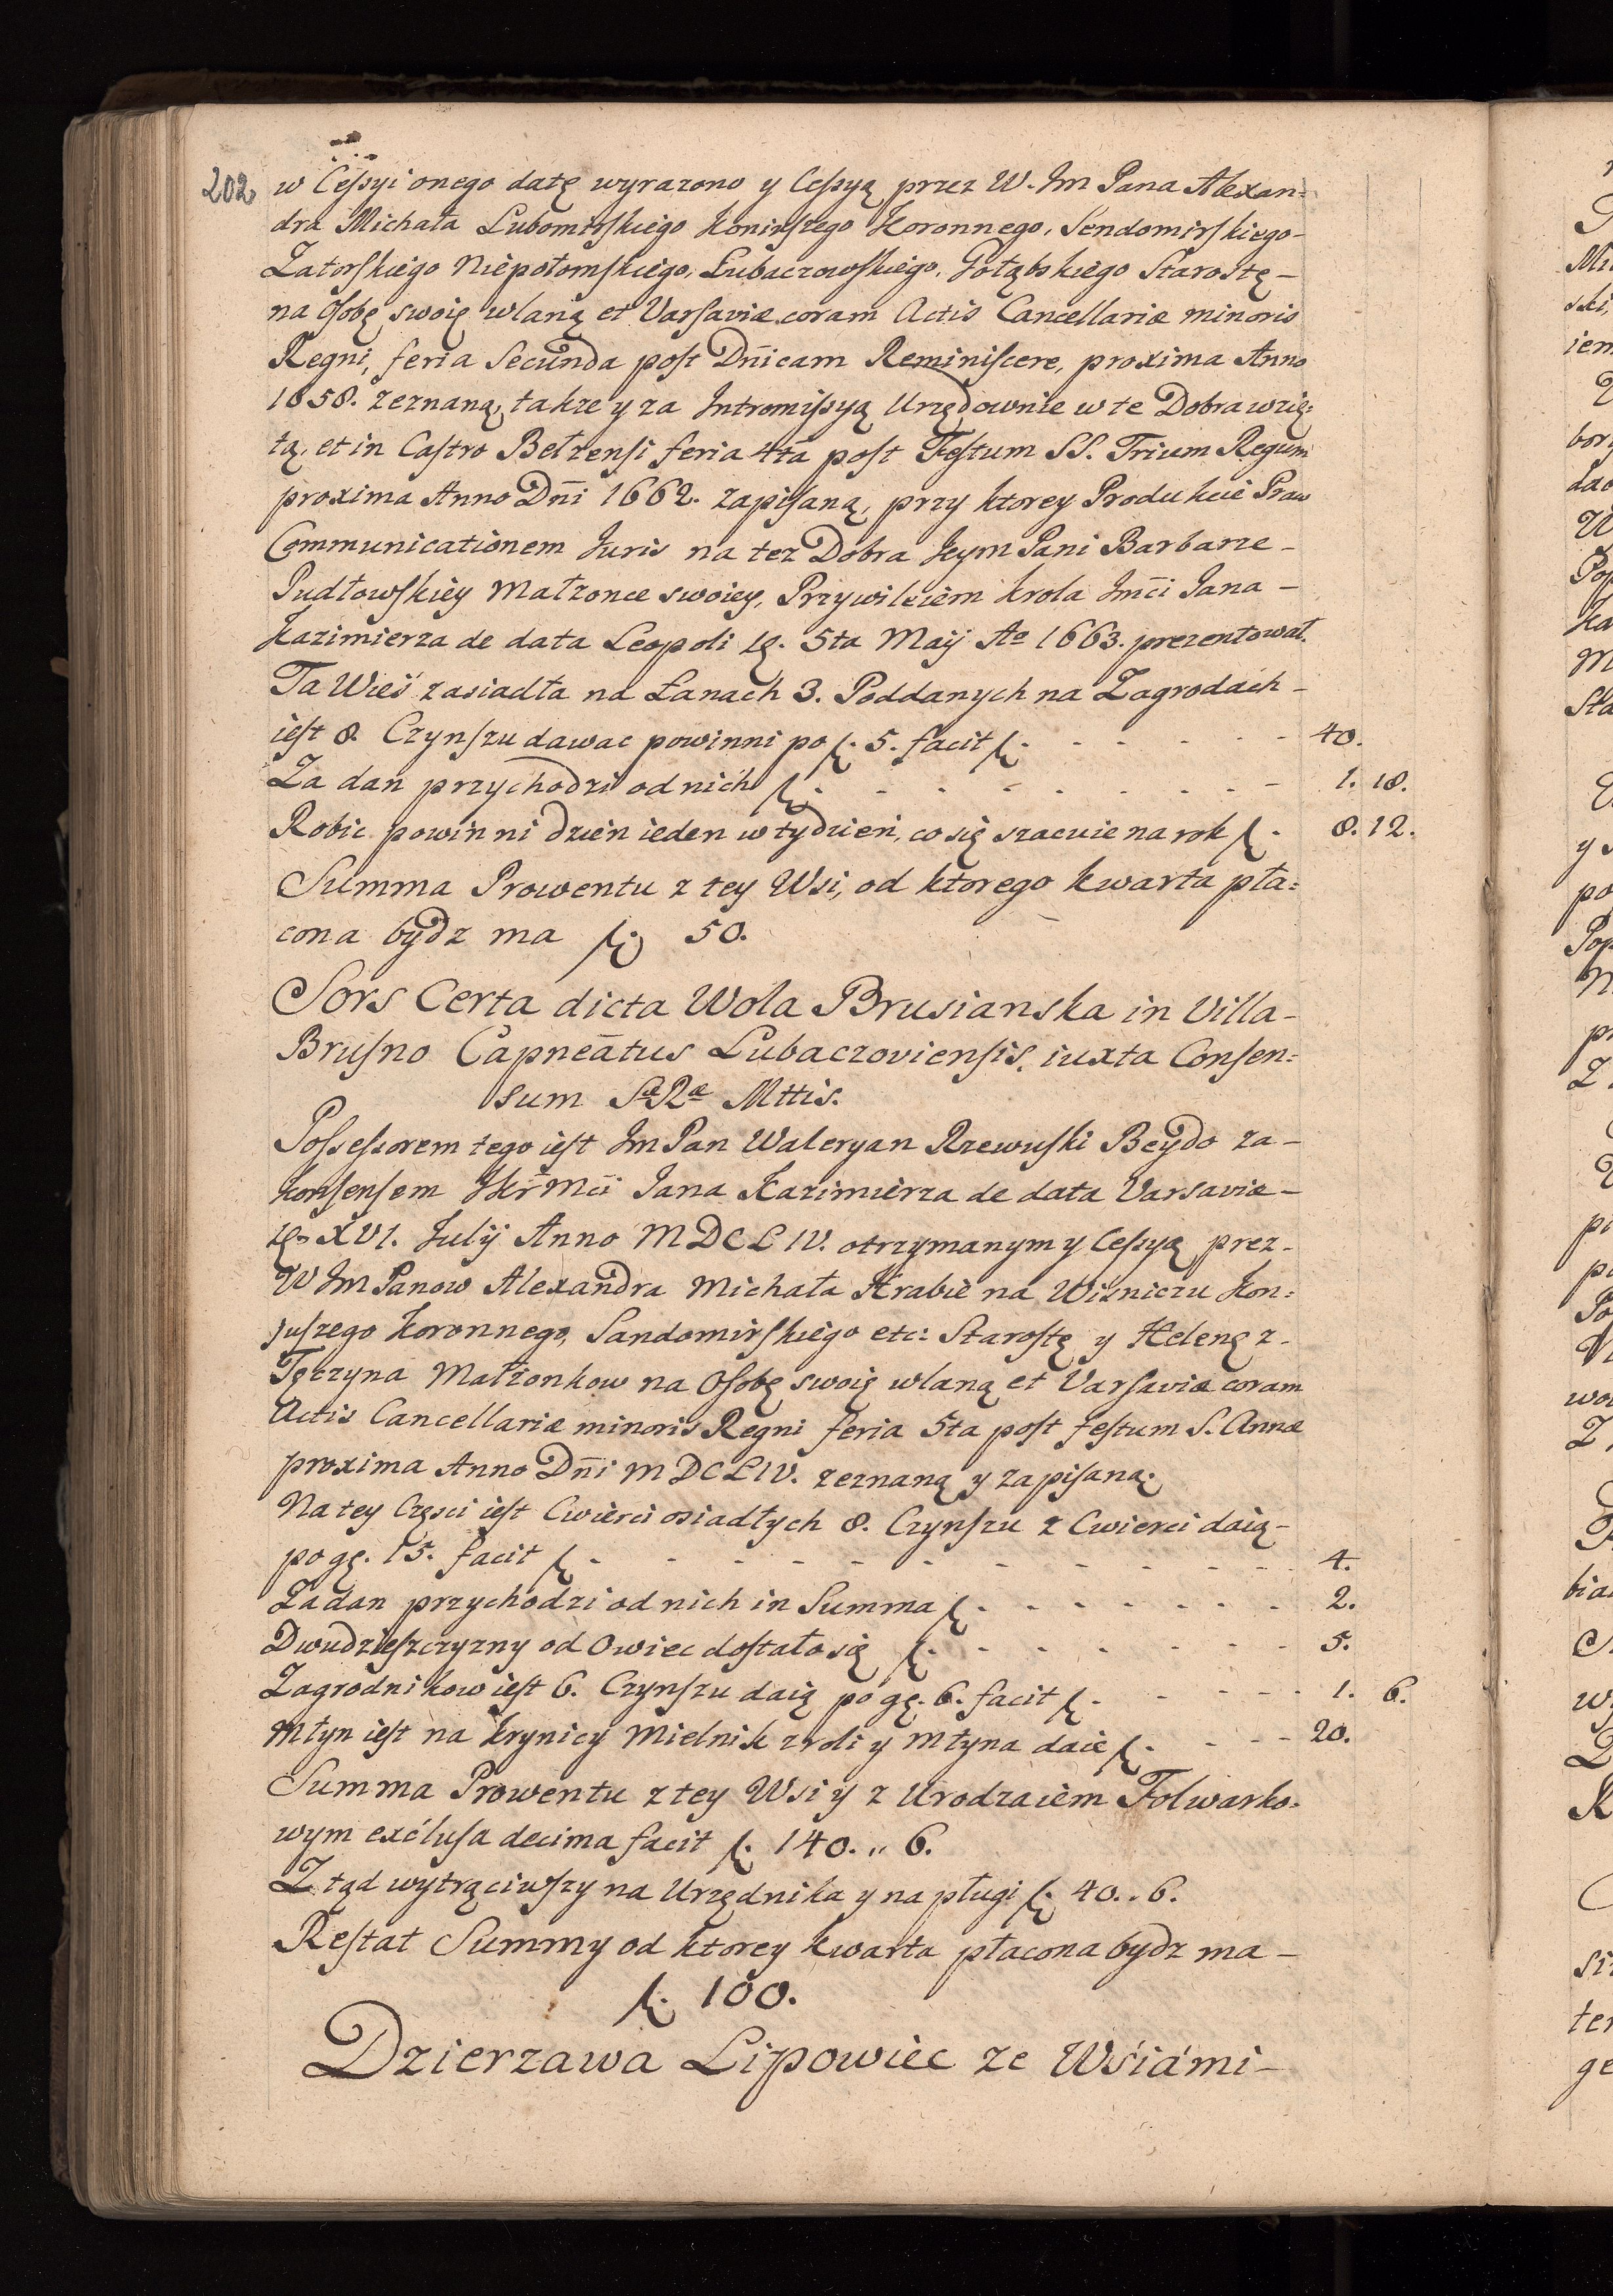 202
w Cessyi onego datę wyrazono y Cessyą przez W. Jm Pana Alexan=
dra Michała Lubomirskiego Koniuszego Koronnego, Sendomirskiego-
Zatorskiego Niepołomskiego, Lubaczowskiego, Gołąbskiego Starostę-
na Osobę swoię wlaną et Varsaviæ coram Actis Cancellariæ minoris
Regni, feria Secunda post Dn̄icam Reminiscere, proxima Anno
1658. zeznaną, takze y za Intromissyą Urzędownie w te Dobra wzię=
tą, et in Castro Belzensi feria 4ta post Festum SS. Trium Regum
proxima Anno Dn̄i 1662. zapisaną, przy ktorey Produkcie Praw
Communicationem Juris na tez Dobra Jeym Pani Barbarze-
Pudłowskiey Małzonce swoiey, Przywileiem Krola Jmc̄i Jana-
Kazimierza de data Leopoli 5ta Maij Ao 1663. prezentował.
Ta Wieś zasiadła na Łanach 3. Poddanych na Zagrodach-
iest 8. Czynszu dawac powinni po fl. 5. facit fl. - - - - - - 40.
Za dan przychodzi od nich fl. - - - - - - - - - 1. 18.
Robic powinni dzien ieden w tydzień, co się szacuie na rok fl. 8. 12.
Summa Prowentu z tey Wsi, od ktorego kwarta pła=
cona bydz ma fl. 50.
Sors Certa dicta Wola Brusianska in Villa-
Brusno Capneātus Lubaczoviensis, iuxta Consen=
sum Sæ Ræ Mttis.
Possessorem tego iest Jm Pan Waleryan Rzewuski Beydo za-
konsensem JKr̄ Mc̄i Jana Kazimierza de data Varsaviæ-
XVI. Julij Anno MDCLIV. otrzymanym y Cessyą prez-
W Jm Panow Alexandra Michała Hrabie na Wisniczu Kon=
juszego Koronnego, Sandomirskiego etc: Starostę y Helenę z-
Tęczyna Małzonkow na Osobę swoię wlaną et Varsaviæ coram
Actis Cancellariæ minoris Regni feria 5ta post festum S. Annæ
proxima Anno Dn̄i MDCLIV. zeznaną y zapisaną.
Na tey Częsci iest Cwierci osiadłych 8. Czynszu z Cwierci daią-
po gę. 15. facit fl. - - - - - - - - - - - - 4.
Za dan przychodzi od nich in Summa fl. - - - - - - - 2.
Dwudzieszczyzny od Owiec dostało się fl. - - - - - - - 5.
Zagrodnikow iest 6. Czynszu daią po gę. 6. facit fl. - - - - - 1. 6.
Młyn iest na Krynicy Mielnik z roli y Młyna daie fl. - - - - 20.
Summa Prowentu z tey Wsi y z Urodzaiem Folwarko=
wym exclusa decima facit fl. 140.,, 6.
Z tąd wytrąciwszy na Urzędnika y na pługi fl. 40.. 6.
Restat Summy od ktorey kwarta płacona bydz ma-
fl. 100.
Dzierzawa Lipowiec ze Wsiami-